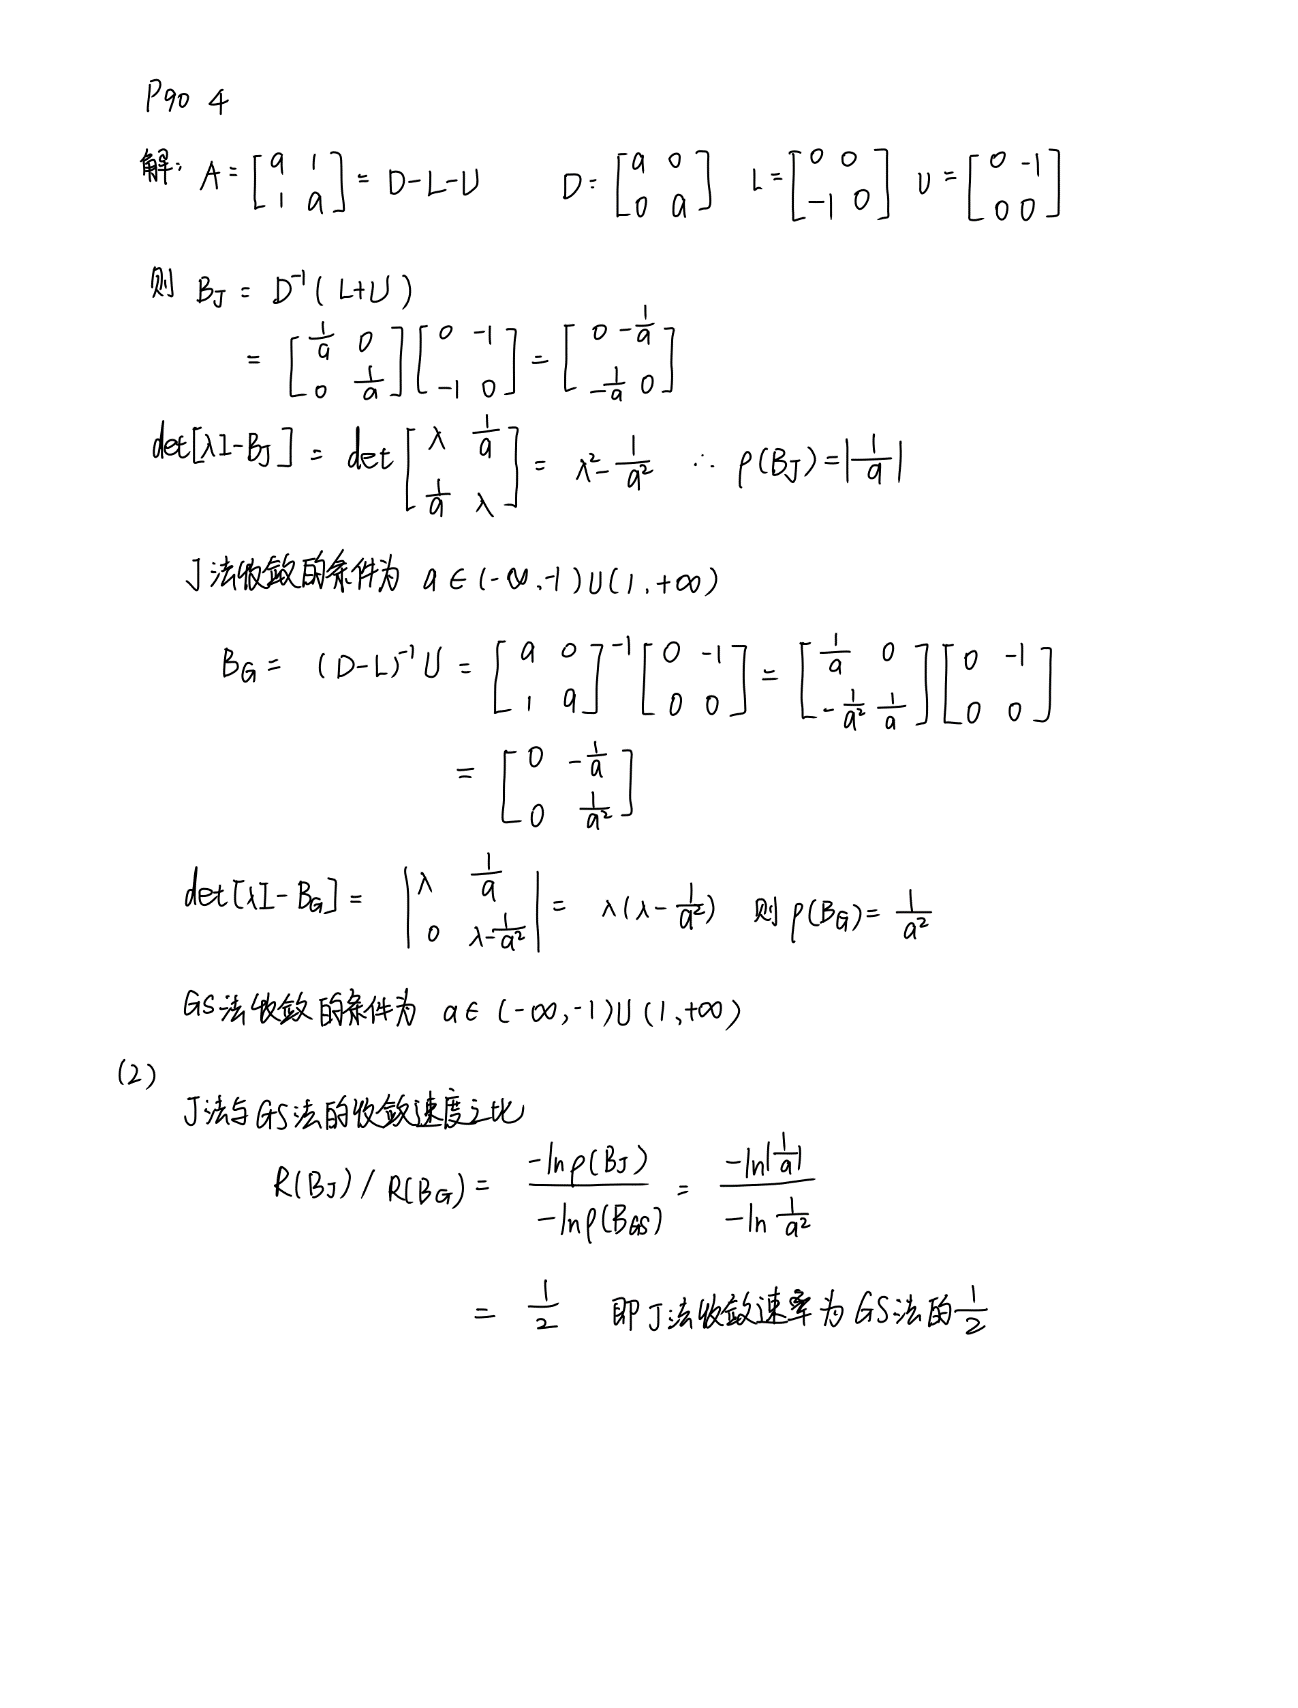 P90 4
解: A = [a 1; 1 a] = D-L-U D = [a 0; 0 a] L = [0 0; -1 0] U = [0 -1; 0 0]
则 B_J = D^{-1}(L+U)
= [1/a 0; 0 1/a][0 -1; -1 0] = [0 -1/a; -1/a 0]
det[λI-B_J] = det[λ 1/a; 1/a λ] = λ²-1/a² ∴ ρ(B_J) = |1/a|
J法收敛的条件为 a∈(-∞,-1)∪(1,+∞)
B_G = (D-L)^{-1}U = [a 0; 1 a]^{-1}[0 -1; 0 0] = [1/a 0; -1/a² 1/a][0 -1; 0 0]
= [0 -1/a; 0 1/a²]
det[λI-B_G] = |λ 1/a; 0 λ-1/a²| = λ(λ-1/a²) 则 ρ(B_G) = 1/a²
GS法收敛的条件为 a∈(-∞,-1)∪(1,+∞)
(2)
J法与GS法的收敛速度之比
R(B_J)/R(B_G) = -lnρ(B_J)/-lnρ(B_GS) = -ln|1/a|/-ln 1/a²
= 1/2 即J法收敛速率为GS法的1/2